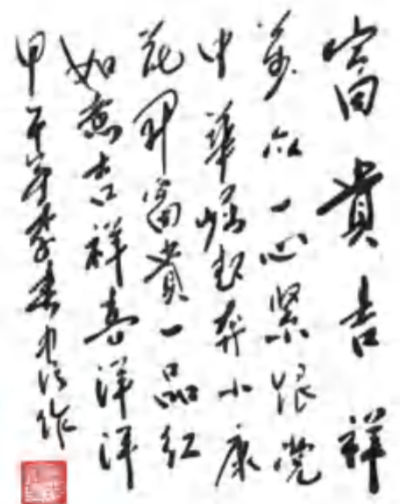 富貴吉祥
萬众一心紧跟党
中華崛起奔小康
花开富貴一品红
如意吉祥喜洋洋
甲午年李春
作